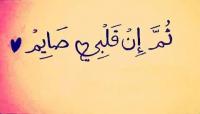 ثُمَّ إِنْ قَلْبِي صَايِمْ